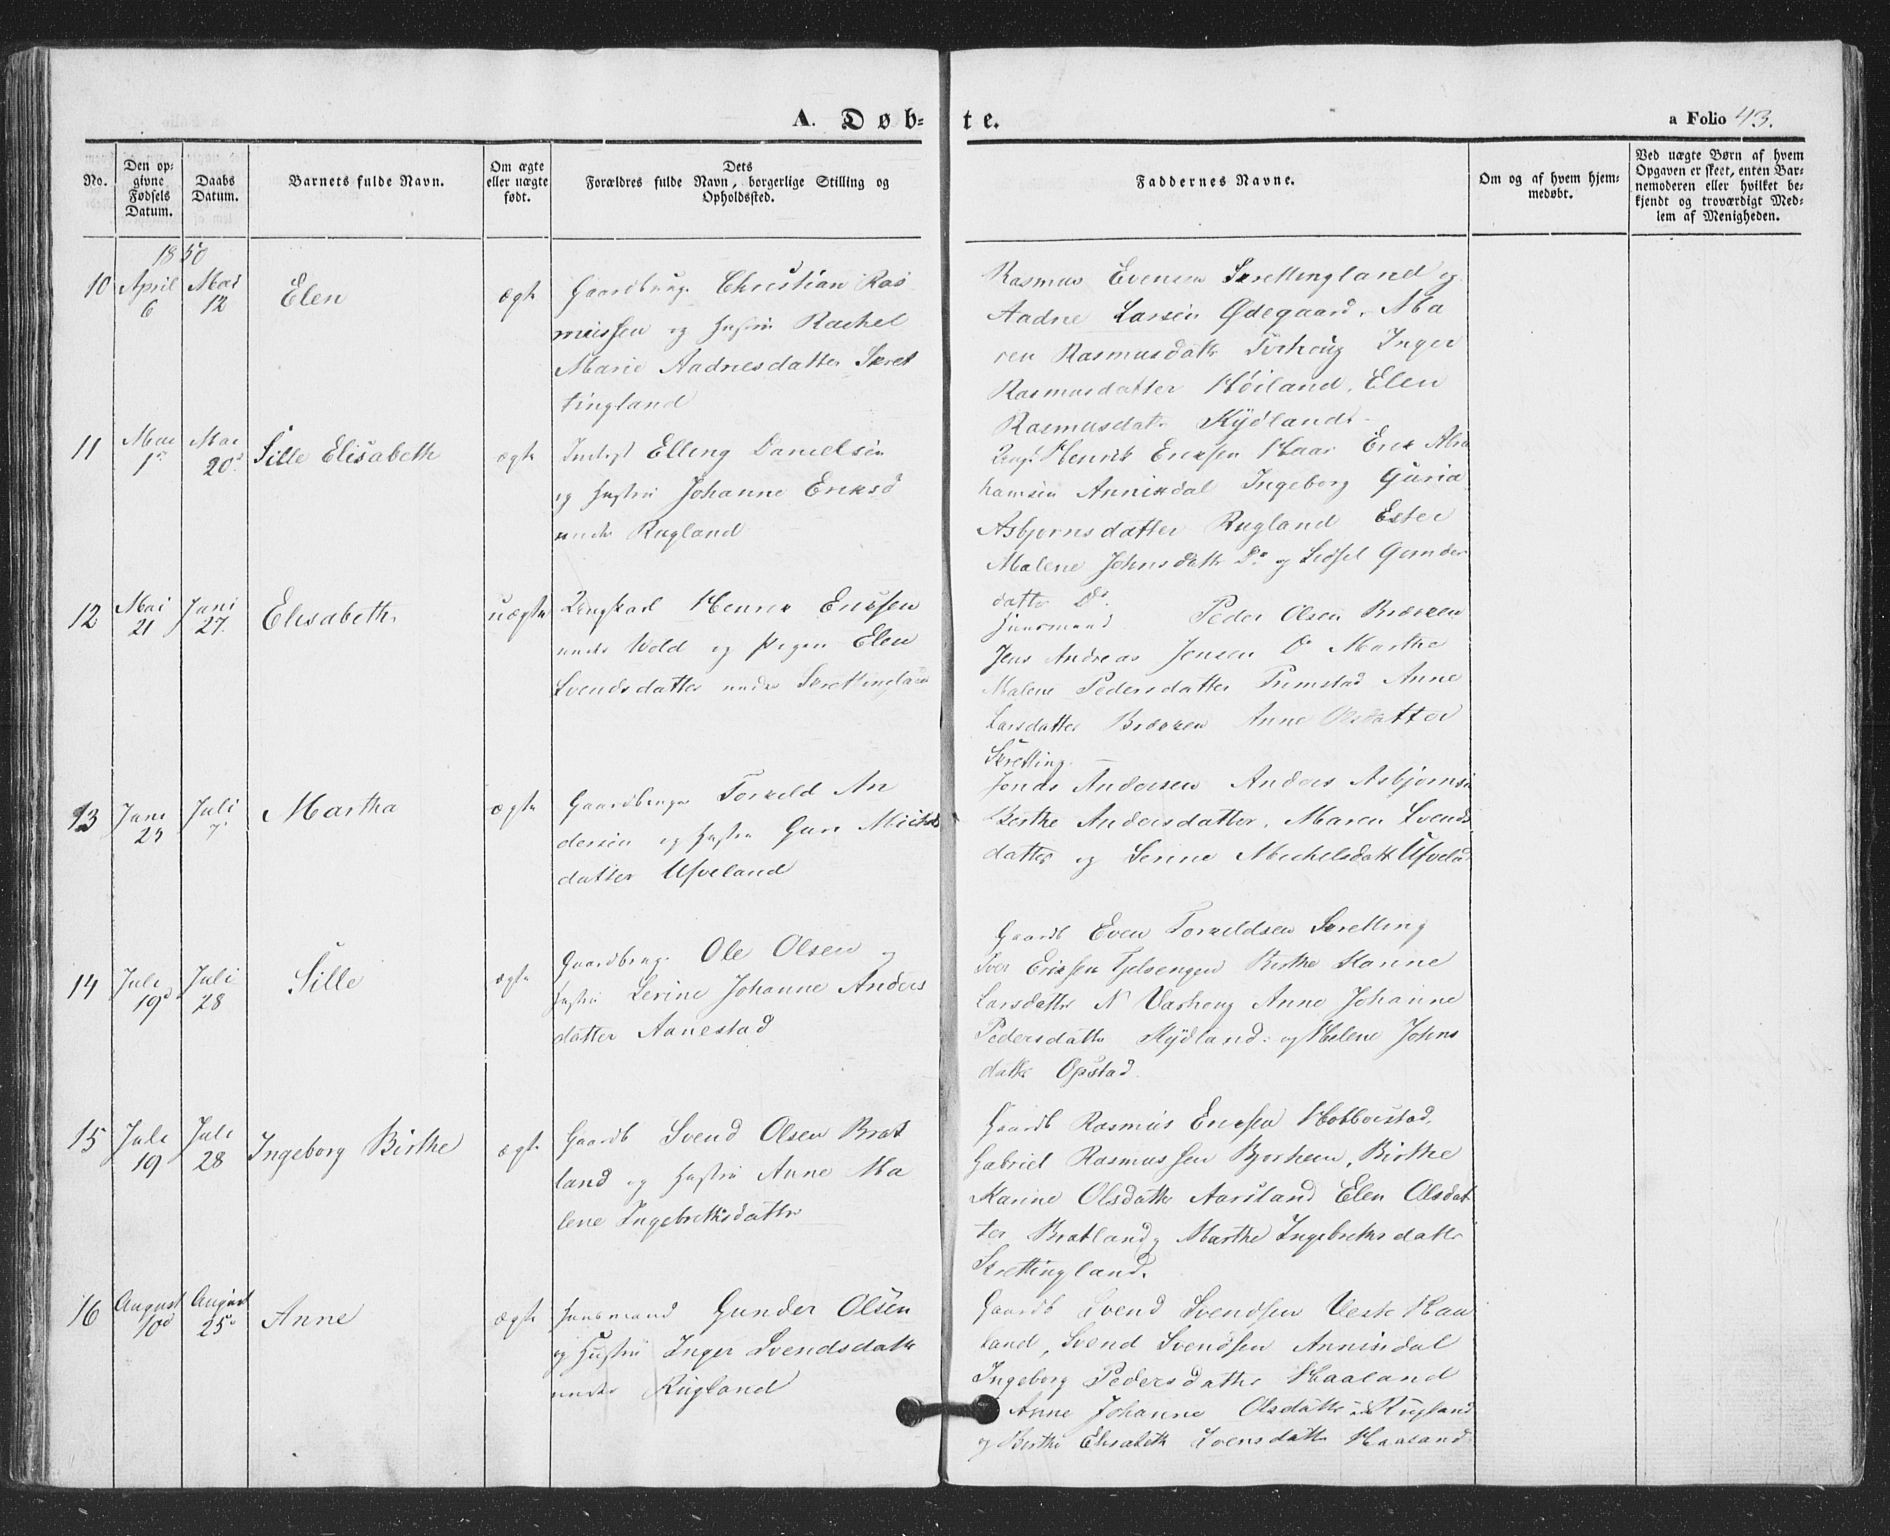 A. Døb-
te.
a Folio 43.
No.
Den op-
givne
Fødsels
Datum.
Daabs
Datum.
Barnets fulde Navn.
Om ægte
eller uægte
født.
Dets
Forældres fulde Navn, borgerlige Stilling og
Opholdssted.
Faddernes Navne.
Om og af hvem hjem-
medøbt.
Ved uægte Børn af hvem
Opgaven er skeet, enten Bar-
nemoderen eller hvilket be-
kjendt og troværdigt Med-
lem af Menigheden.
1850
10 April 6 Mai 12 Elen ægte
Gaardbrug. Christian Ras
mussen og Hustru Rachel
Marie Aadnesdatter Skret
tingland
Rasmus Evensen Skrettingland og
Aadne Larsen Ødegaard, Ma
ren Rasmusdattr Torhoug Inger
Rasmusdatter Høiland, Elen
Rasmusdatr Kydland
11 Mai 1 Mai 20 Sille Elisabeth ægte
Inderst Elling Danielsen
og Hustru Johanne Eriksd
under Rugland
Henrik Eriksen Haar Erik Abra
hamsen Annisdal Ingeborg Guria
Asbjørnsdatter Rugland Ester
Malene Johnsdattr Do og Sidsel Gunder
datter Do
12 Mai 21 Juni 27 Elisabeth uægte
Ungkarl Henrik Eriksen
under Wold og Pigen Elen
Svendsdatter under Skrettingland
Huusmand Peder Olsen Brækken
Jens Andreas Jensen Do Marthe
Malene Pedersdatter Tumstad Anne
Larsdatter Brækken Anne Olsdatter
Skretting
13 Juni 23 Juli 7 Martha ægte
Gaardbruger Torkeld An
dersen og Hustru Guri Michels
datter Ufveland
Jonas Andersen Anders Asbjørnsen
Birthe Andersdatter, Maren Svends
datter og Serine Michelsdatt Ufveland
14 Juli 19 Juli 28 Sille ægte
Gaardbrug. Ole Olsen og
Hustru Serine Johanne Anders
datter Aanestad
Gaardb Even Torkeldsen Skretting
Iver Eriksen Fjelsengen Birthe Karine
Larsdattr N Varhoug Anne Johanne
Pedersdattr Kydland og Helene Johns
dattr Opstad.
15 Juli 19 Juli 28 Ingeborg Birthe ægte
Gaardb Svend Olsen Brat
land og Hustru Anne Ma
lene Ingebretsdattr
Gaardb Rasmus Eriksen Hobberstad,
Gabriel Rasmussen Bjorheim, Birthe
Karine Olsdattr Aarsland Elen Olsdat
ter Bratland og Marthe Ingebretsdattr
Skrettingland.
16 August 10 August 25 Anne ægte
Huusmand Gunder Olsen
og Hustru Inger Svendsdattr
under Rugland
Gaardb Svend Svendsen Vestr Haa
land, Svend Svendsen Annisdal
Ingeborg Pedersdatter Haaland
Anne Johanne Olsdattr Rugland
og Birthe Elisabeth Svensdattr Haaland